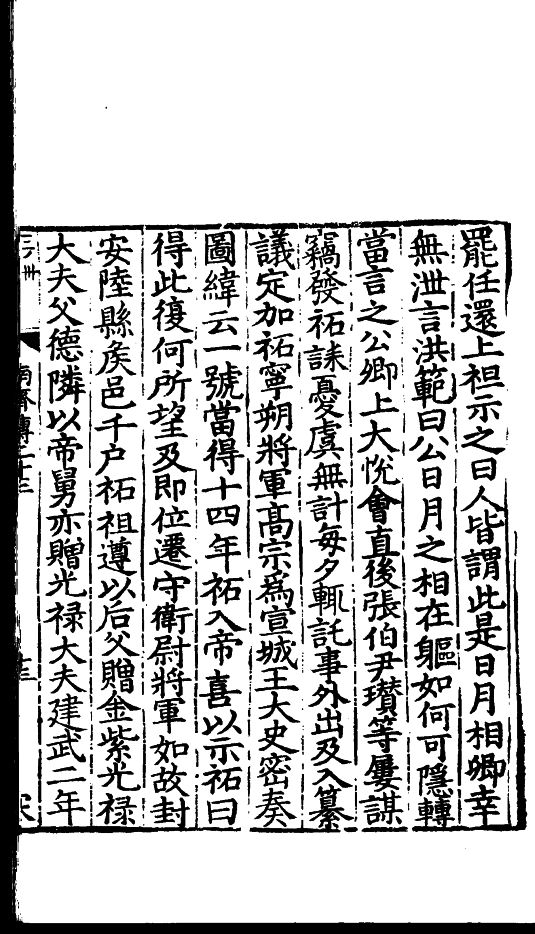 罷任還上袒示之曰人皆謂此是日月相卿幸
無泄言洪範曰公日月之相在軀如何可隱轉
當言之公卿上大恱會直後張伯尹瓚等屢謀
竊發祏誄憂虞無計每夕輒託事外出及入纂
議定加祏寧朔將軍髙宗爲宣城王大史密奏
圖緯云一號當得十四年祏入帝喜以示祏曰
得此復何所望及即位遷守衛尉將軍如故封
安陸縣矦邑千戸祏祖遵以后父贈金紫光禄
大夫父德隣以帝舅亦贈光禄大夫建武二年
南齊傳二十三